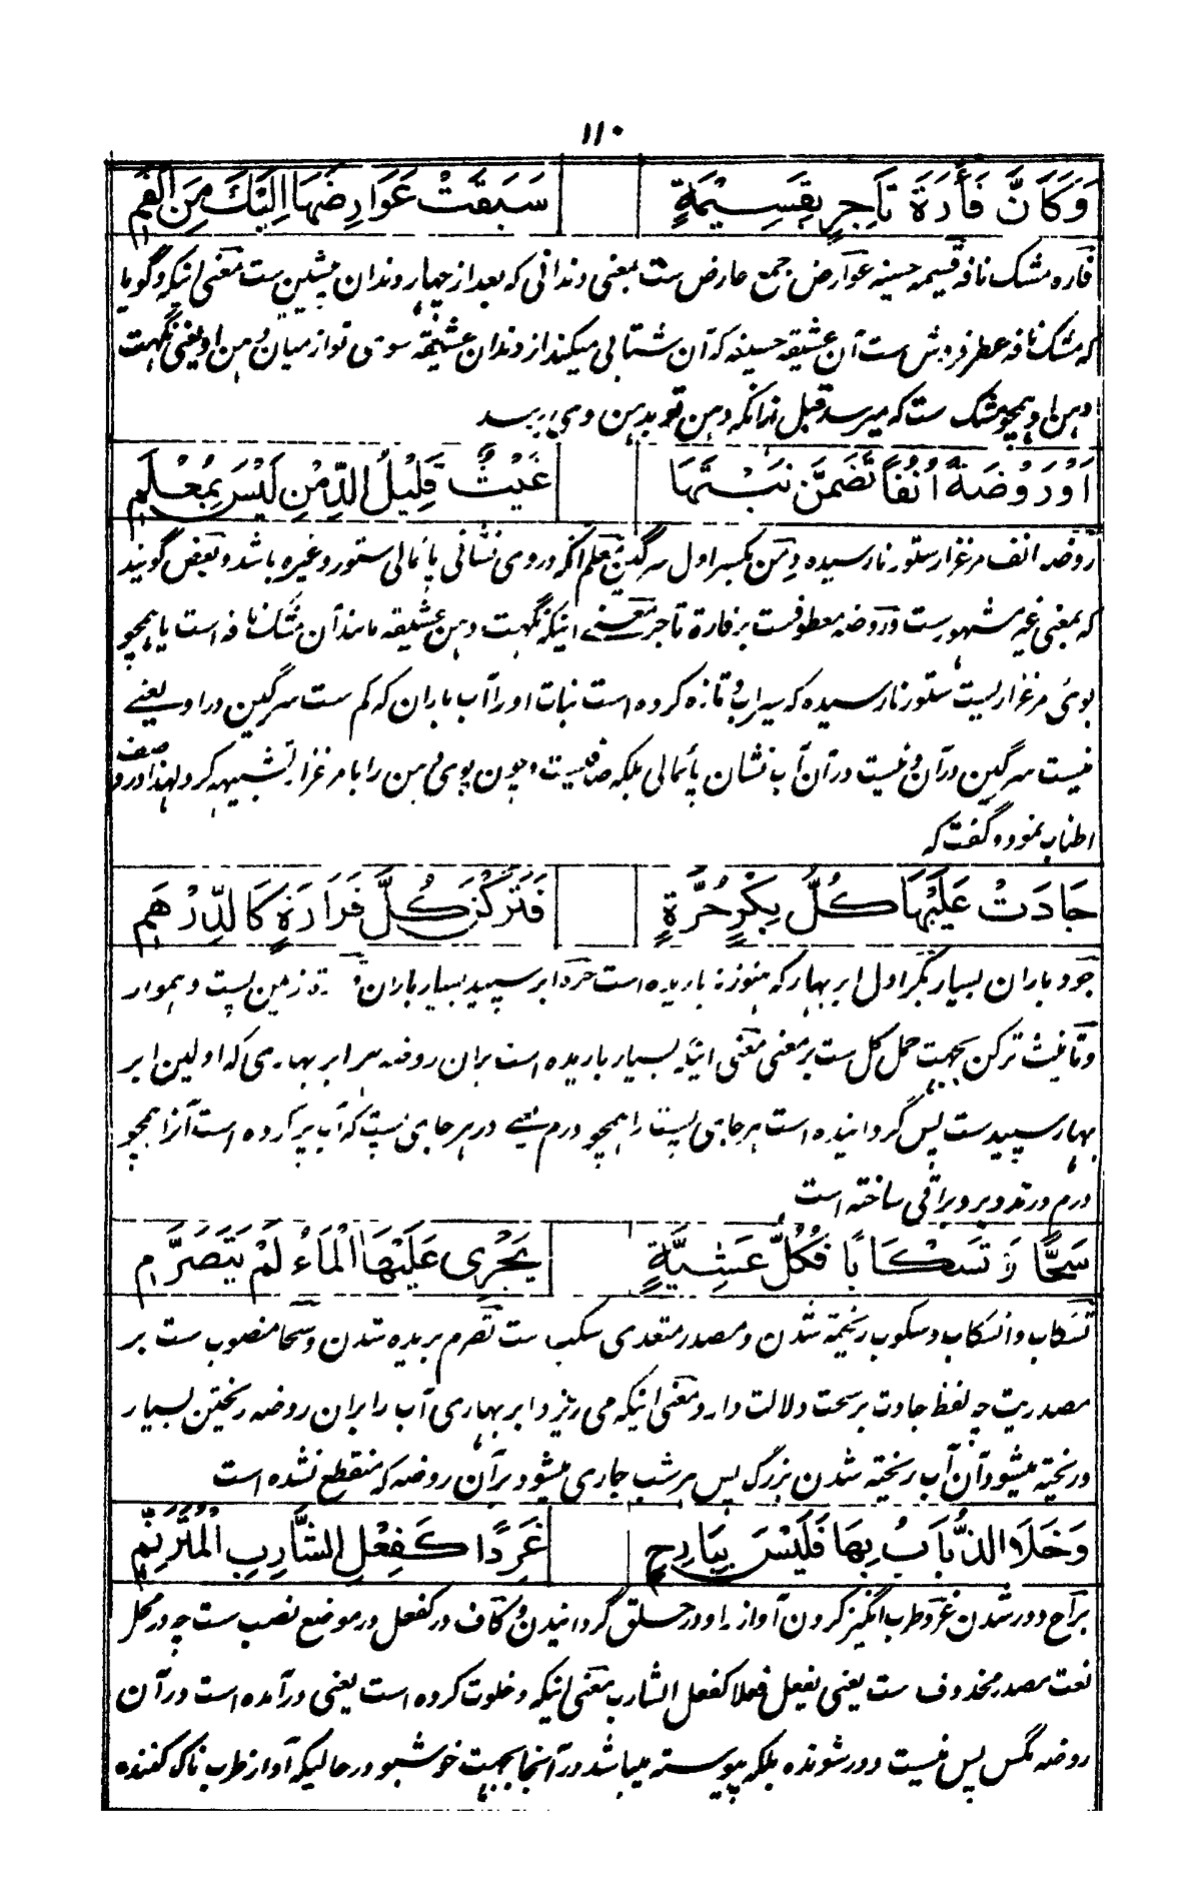 ۱۱۰
وَكَأَنَّ فَأْرَةَ تَاجِرٍ بِقَسِيْمَةٍ سَبَقَتْ عَوَارِضَهَا اِلَيْكَ مِنَ الْفَمِ
فاره مشک نافه قسیمه حسینه عوارض جمع عارض ست بمعنی دندانی که بعد از چهار دندان پیشین ست معنی اینکه و گویا
که مشک نافه عطر فروش ست آن عشیقه حسینه که آن شتابی میکند از دندان عشیقه سوی تو از میان دهن او یعنی نگهت
دهن او همچو مشک ست که میرسد قبل زانکه دهن تو بدهن وی برسد
اَوْرَوْضَةً اُنُفًا تَضَمَّنَ نَبْتَهَا غَيْثٌ قَلِيْلُ الدِّمْنِ لَيْسَ بِمُعْلَمِ
روضه انف مرغزار ستور نارسیده دمن بکسر اول سرگین معلم انکه دروی نشانی پائمالی ستور وغیره باشد و بعض گویند
که بمعنی غیر مشهور ست و روضه معطوفست بر فارة تاجر معنے اینکه نگهت دهن عشیقه مانند آن مشک نافه است یا همچو
بوی مرغزاریست ستور نارسیده که سیراب و تازه کرده است نبات او را آب باران که کم ست سرگین در او یعنے
نیست سرگین در آن و نیست در آن آب نشان پائمالی بلکه صافیست و چون بوی دهن را با مرغزار تشبیهه کرد لهذا در وصف
اطناب نمود و گفت که
جَادَتْ عَلَيْهَا كُلُّ بِكْرٍ حُرَّةٍ فَتَرَكْنَ كُلَّ قَرَارَةٍ كَالدِّرْهَمِ
جود باران بسیار بکر اول ابر بهار که هنوز نه باریده است حره ابر سپید بسیار باران زمین پست و هموار
و تانیث ترکن بجهت حمل کل ست بر معنی معنی اینکه بسیار باریده است بران روضه هر ابر بهاری که اولین ابر
بهار سپید ست پس گردانیده است هر جای پست را همچو درم یعنے در هر جای پست که آب پر کرده است آنرا همچو
درم در تدویر و براقی ساخته است
سَحًّا وَ تَسْكَابًا فَكُلُّ عَشِيَّةٍ يَجْرِى عَلَيْهَا الْمَاءُ لَمْ يَتَصَرَّمِ
تسکاب و انسکاب و سکوب ریخته شدن و مصدر متعدی سکب ست تصرم بریده شدن و سحا منصوب ست بر
مصدریت چه لفظ جادت بر سحت دلالت دارد و معنی اینکه می ریزد ابر بهاری آب را بران روضه ریختن بسیار
و ریخته میشود آن آب ریخته شدن بزرگ پس هر شب جاری میشود بر آن روضه که منقطع نشده است
وَخَلَا الذُّبَابُ بِهَا فَلَيْسَ بِبَارِحٍ غَرِدًا كَفِعْلِ الشَّارِبِ الْمُتَرَنِّمِ
براح دور شدن غرد طرب انگیز کردن آواز را و در حلق گردانیدن و کاف در کفعل در موضع نصب ست چه در محل
نعت مصدر محذوف ست یعنی یفعل فعلا کفعل الشارب معنی اینکه و خلوت کرده است یعنی در آمده است در آن
روضه مگس پس نیست دور شونده بلکه پیوسته میباشد در آنجا بجهت خوشبو در حالیکه آواز طرب ناک کننده